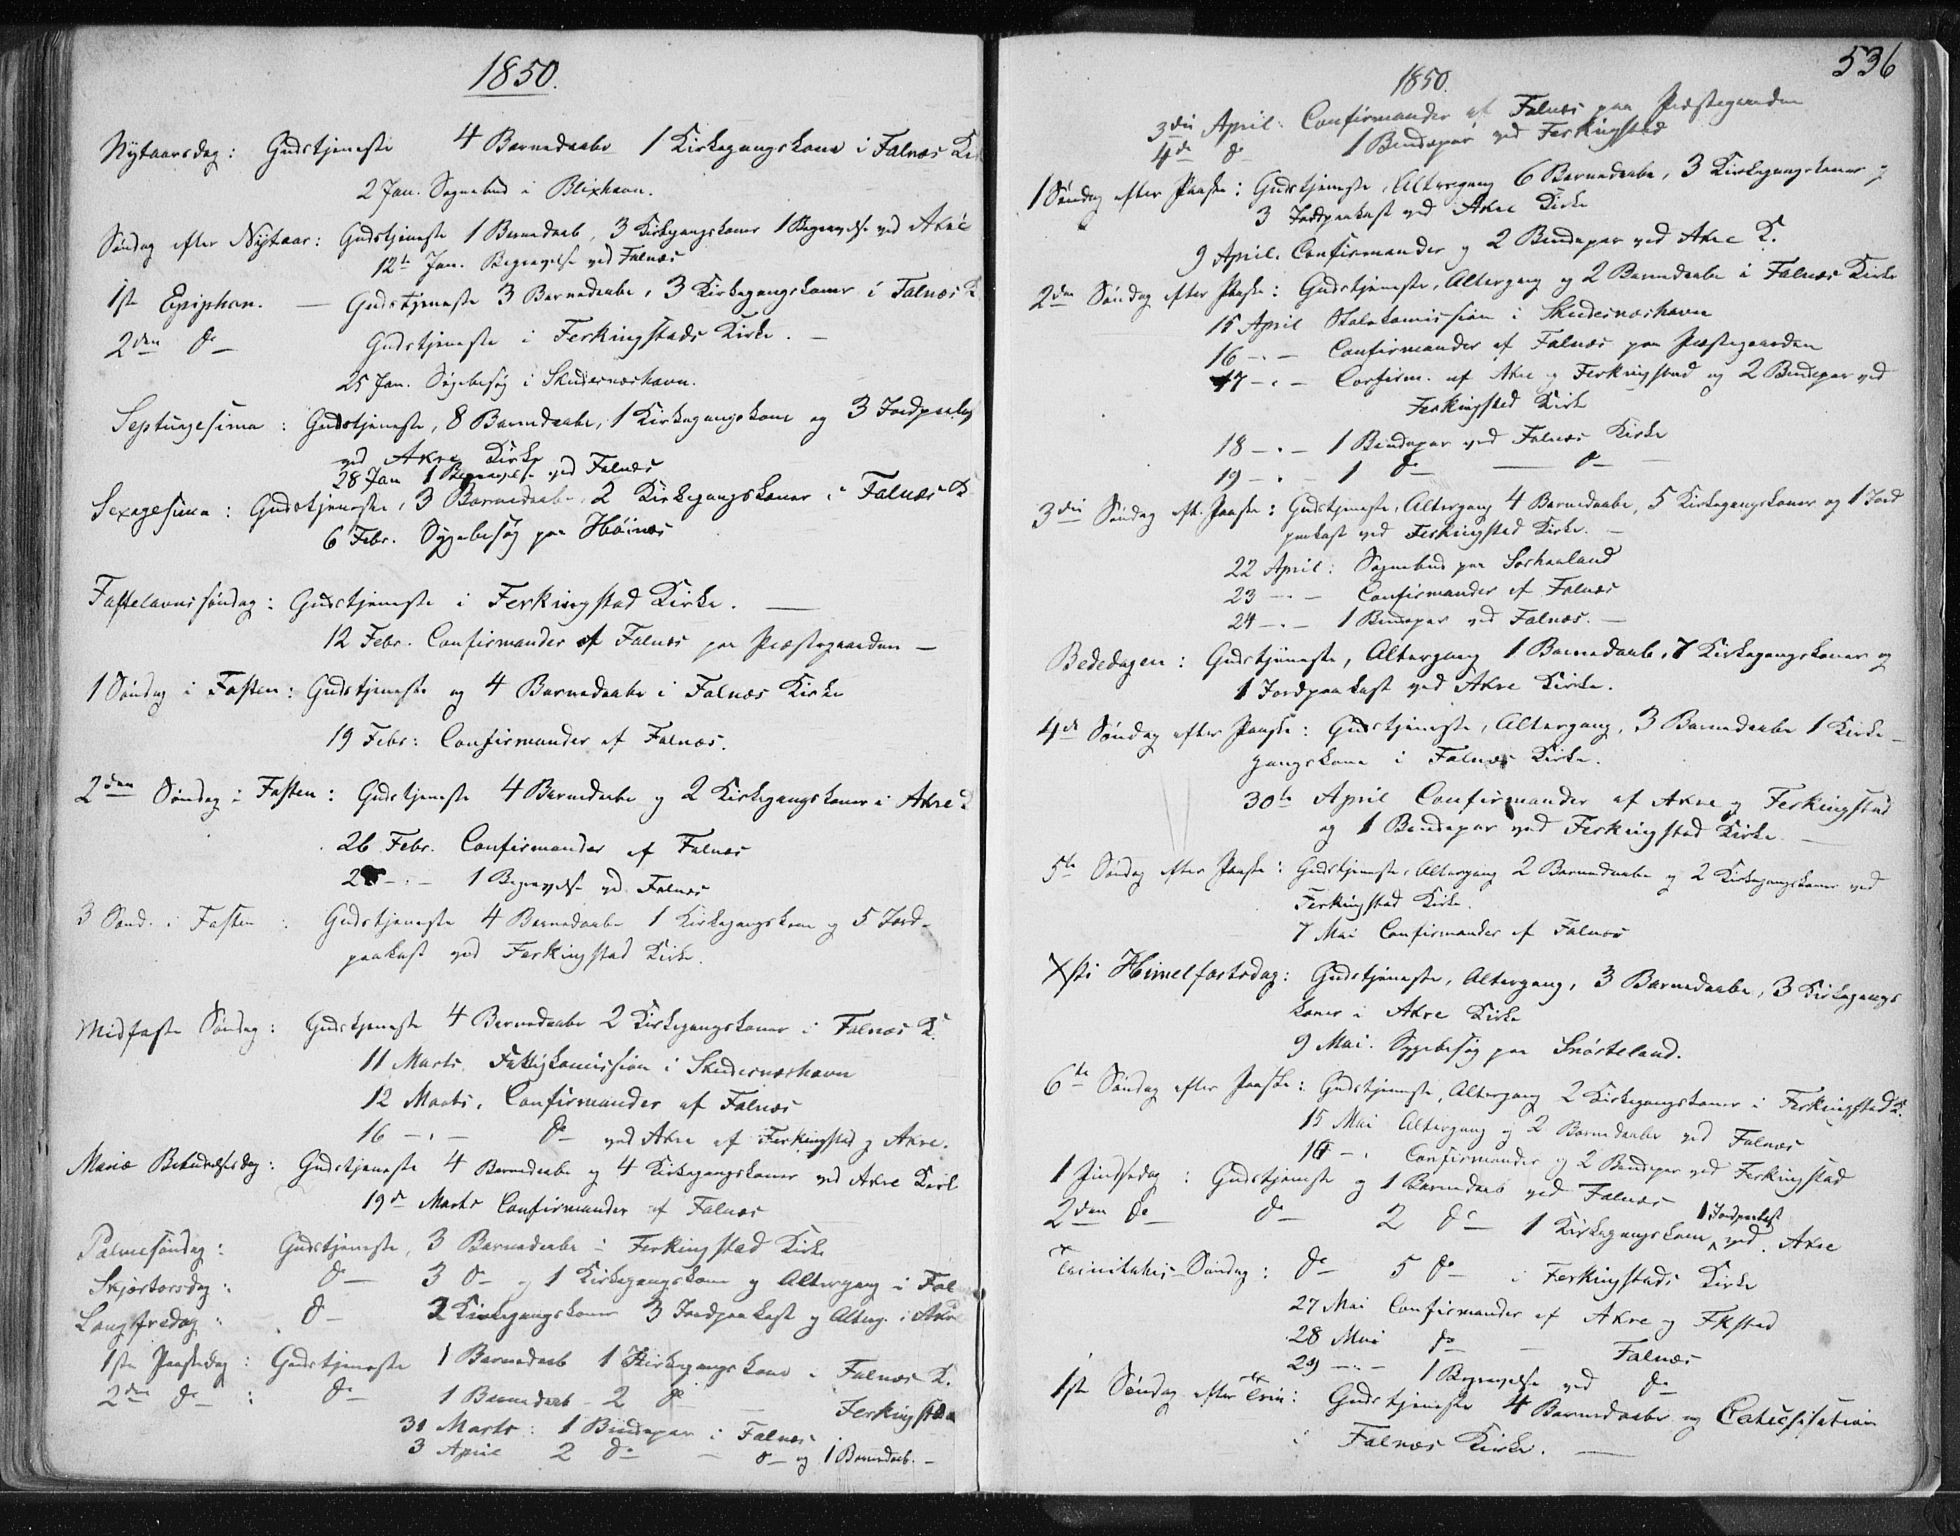 1850.
Nytaarsdag: Gudstjeneste 4 Barnedaabe 1 Kirkegangskone i Falnæs Kir
2 Jan. Sognebud i Blixhavn.
Søndag efter Nytaar: Gudstjeneste 1 Barnedaab, 3 Kirkegangskoner 1 Begravelse ved Akre
12te Jan. Begravelse ved Falnæs
1ste Epiphan. — Gudstjeneste 3 Barnedaabe, 3 Kirkegangskoner i Falnæs K
2den do — Gudstjeneste i Ferkingstads Kirke. —
25 Jan. Sygebesøg i Skudesnæshavn.
Septuagesima: Gudstjeneste, 8 Barnedaabe, 1 Kirkegangskone og 3 Jordpaak
ved Akre Kirke
28 Jan 1 Begravelse ved Falnæs
Sexagesima: Gudstjeneste, 3 Barnedaabe, 2 Kirkegangskoner i Falnæs K
6 Febr. Sygebesøg paa Høinæs
Fastelavnssøndag: Gudstjeneste i Ferkingstad Kirke. —
12 Febr. Confirmander af Falnæs paa Præstegaarden —
1 Søndag i Fasten: Gudstjeneste og 4 Barnedaabe i Falnæs Kirke
19 Febr: Confirmander af Falnæs.
2den Søndag i Fasten: Gudstjeneste 4 Barnedaabe og 2 Kirkegangskoner i Akre K
26 Febr. Confirmander af Falnæs
— . — 1 Begravelse ved Falnæs
3 Sønd. i Fasten: Gudstjeneste 4 Barnedaabe 1 Kirkegangskone og 5 Jord-
paakast ved Ferkingstad Kirke.
Midfaste Søndag: Gudstjeneste 4 Barnedaabe 2 Kirkegangskoner i Falnæs K.
11 Marts. Fattigkomission i Skudesnæshavn
12 Marts. Confirmander af Falnæs
16 — . — do — ved Akre af Ferkingstad og Akre.
Mariæ Bebudelsesdag: Gudstjeneste 4 Barnedaabe og 4 Kirkegangskoner ved Akre Kirk
19de Marts Confirmander af Falnæs
Palmesøndag: Gudstjeneste, 3 Barnedaabe i Ferkingstad Kirke
Skjærtorsdag: do — 3 do — og 1 Kirkegangskone og Altergang i Fal
Langfredag: do — 2 Kirkegangskoner 3 Jordpaakast og Alterg. i Akre
1ste Paaskedag: Gudstjeneste 1 Barnedaab 1 Kirkegangskone i Falnæs K.
2den do — : do — 1 Barnedaab — 2 do — Ferkingstad
31 Marts: 1 Brudepar i Falnæs
3 April 2 do — — do — og 1 Barnedaab. —
536
1850.
3die April. Confirmander af Falnæs paa Præstegaarden
4de do 1 Brudepar ved Ferkingstad
1 Søndag efter Paaske: Gudstjeneste, Altergang 6 Barnedaabe, 3 Kirkegangskoner og
3 Jordpaakast ved Akre Kirke
9 April. Confirmander og 2 Brudepar ved Akre K.
2den Søndag efter Paaske: Gudstjeneste, Altergang og 2 Barnedaabe i Falnæs Kirke
15 April Skolekomission i Skudesnæshavn
16 — . — Confirmander af Falnæs paa Præstegaarden
17 — . — Confirm. af Akre og Ferkingstad og 2 Brudepar ved
Ferkingstad Kirke
18 — . — 1 Brudepar ved Falnæs Kirke
19 — . — 1 do — — do —
3die Søndag eft. Paaske: Gudstjeneste, Altergang 4 Barnedaabe, 5 Kirkegangskoner og 1 Jord
paakast ved Ferkingstad Kirke. —
22 April: Sognebud paa Sørhaaland
23 — . — Confirmander af Falnæs
24 — . — 1 Brudepar ved Falnæs. —
Bededagen: Gudstjeneste, Altergang 1 Barnedaab, 7 Kirkegangskoner og
1 Jordpaakast ved Akre Kirke.
4de Søndag efter Paaske: Gudstjeneste, Altergang, 3 Barnedaabe 1 Kirke-
gangskone i Falnæs Kirke.
30te April Confirmander af Akre og Ferkingstad
og 1 Brudepar ved Ferkingstad Kirke. —
5te Søndag efter Paaske: Gudstjeneste, Altergang 2 Barnedaabe og 2 Kirkegangskoner ved
Ferkingstad Kirke.
7 Mai Confirmander af Falnæs
Xsti Himelfartsdag: Gudstjeneste, Altergang, 3 Barnedaabe, 3 Kirkegangs
koner i Akre Kirke
9 Mai. Sygebesøg paa Snørteland.
6te Søndag efter Paaske: Gudstjeneste, Altergang 2 Kirkegangskoner i Ferkingstad K.
15 Mai Altergang og 2 Barnedaabe ved Falnæs
16 — . Confirmander og 2 Brudepar ved Ferkingstad
1 Pindsedag: Gudstjeneste og 1 Barnedaab ved Falnæs
2den do — do — 2 do — 1 Kirkegangskone 1 Jordpaakast ved Akre
Trinitatis-Søndag: do — 5 do — i Ferkingstads Kirke
27 Mai Confirmander af Akre og Fkstad
28 Mai do — — Falnæs
29 — . — 1 Begravelse ved do —
1ste Søndag efter Trin: Gudstjeneste 4 Barnedaabe og Catechisation
i Falnæs Kirke. —